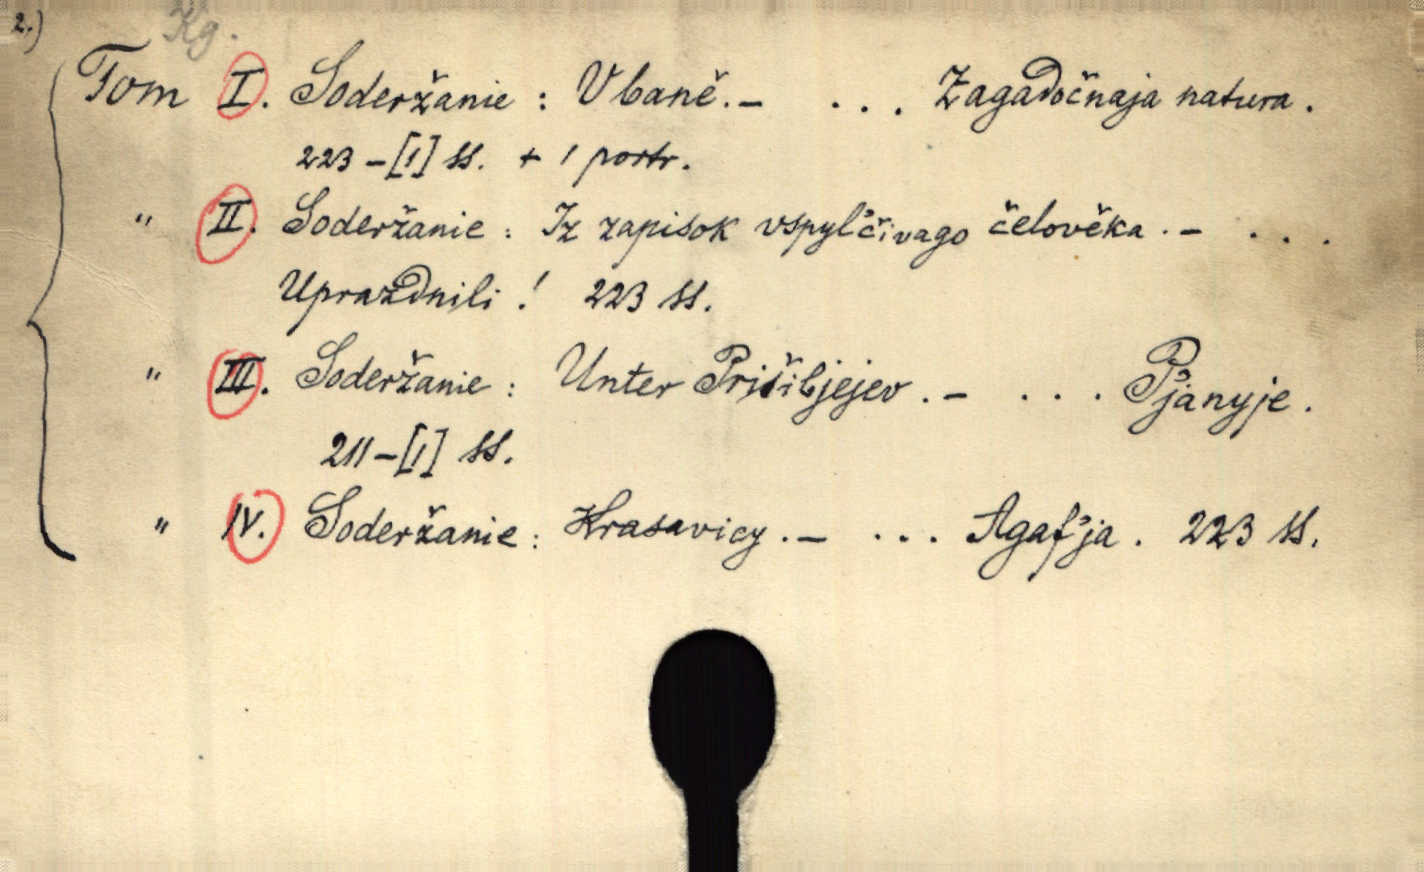 2.)
Kg.
Tom I. Soderžanie: V baně. — ... Zagadočnaja natura.
223 – [1] ss. + 1 portr.
" II. Soderžanie: Iz zapisok vspyl'čivago čelověka. — ...
Uprazdnili! 223 ss.
" III. Soderžanie: Unter Prišibjejev. — ... P'janyje.
211 – [1] ss.
" IV. Soderžanie: Krasavicy. — ... Agaf'ja. 223 ss.